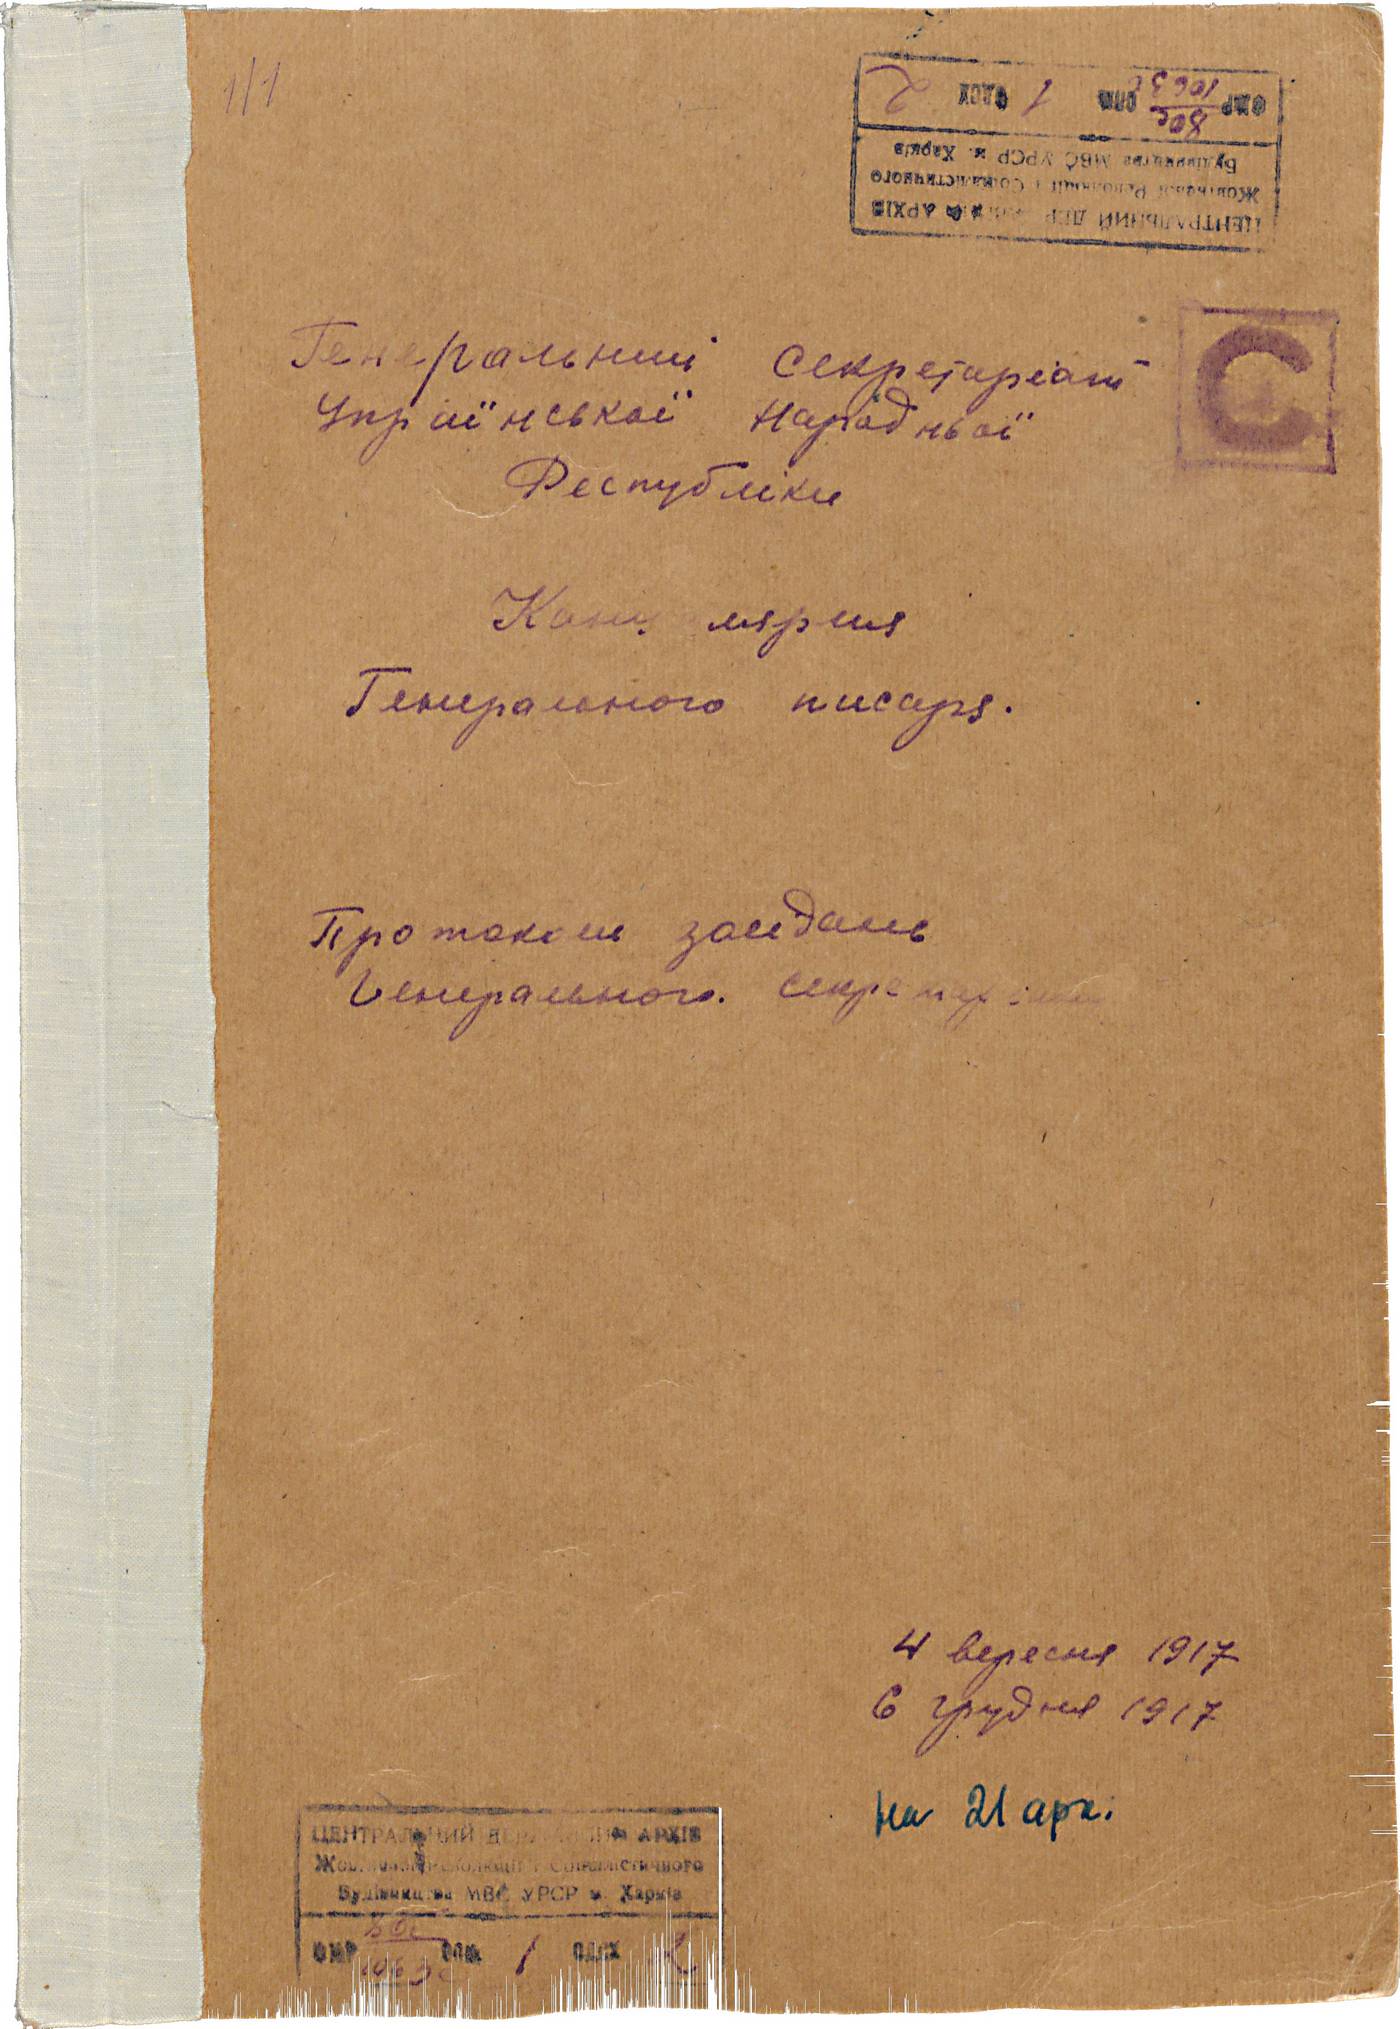 1/1
ЦЕНТРАЛЬНИЙ ДЕР АРХІВ
Жовтневої Революції і Соціалістичного
Будівництва МВС УРСР м. Харків
1063 с ОПИС 1 ОДСХ 2
С
Генеральний Секретаріат
Української Народньої
Республіки
Канц лярия
Генерального писаря.
Протоколи засідань
Генерального Секретаріату
4 вересня 1917
6 грудня 1917
на 21 арк.
ЦЕНТРАЛЬНИЙ АРХІВ
Жовтневої Революції і Соціалістичного
Будівництва МВС УРСР м. Харків
1063 с 1 ОДСХ 2